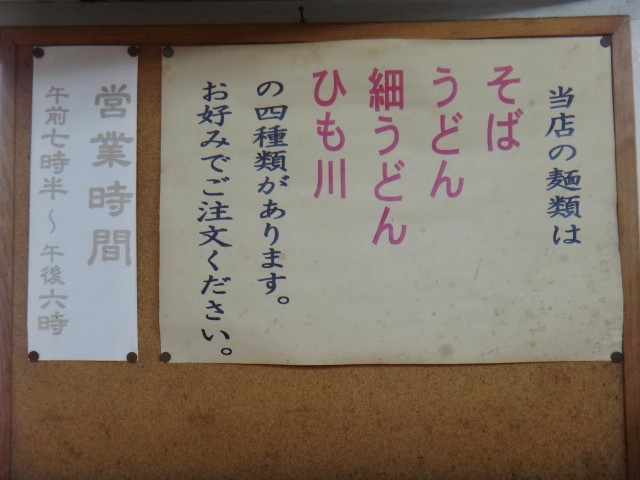 当店の麺類は
そば
うどん
細うどん
ひも川
の四種類があります。
お好みでご注文ください。
営業時間
午前七時半〜午後六時